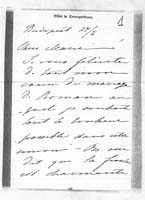 Billet de Correspondance.
Budapest 27/5
Chère Marie
Je vous félicite
de tout mon
coeur du mariage
de Roman au
quel je souhaite
tout le bonheur
possible dans cette
union. On me
dit que la fiancée
est charmante